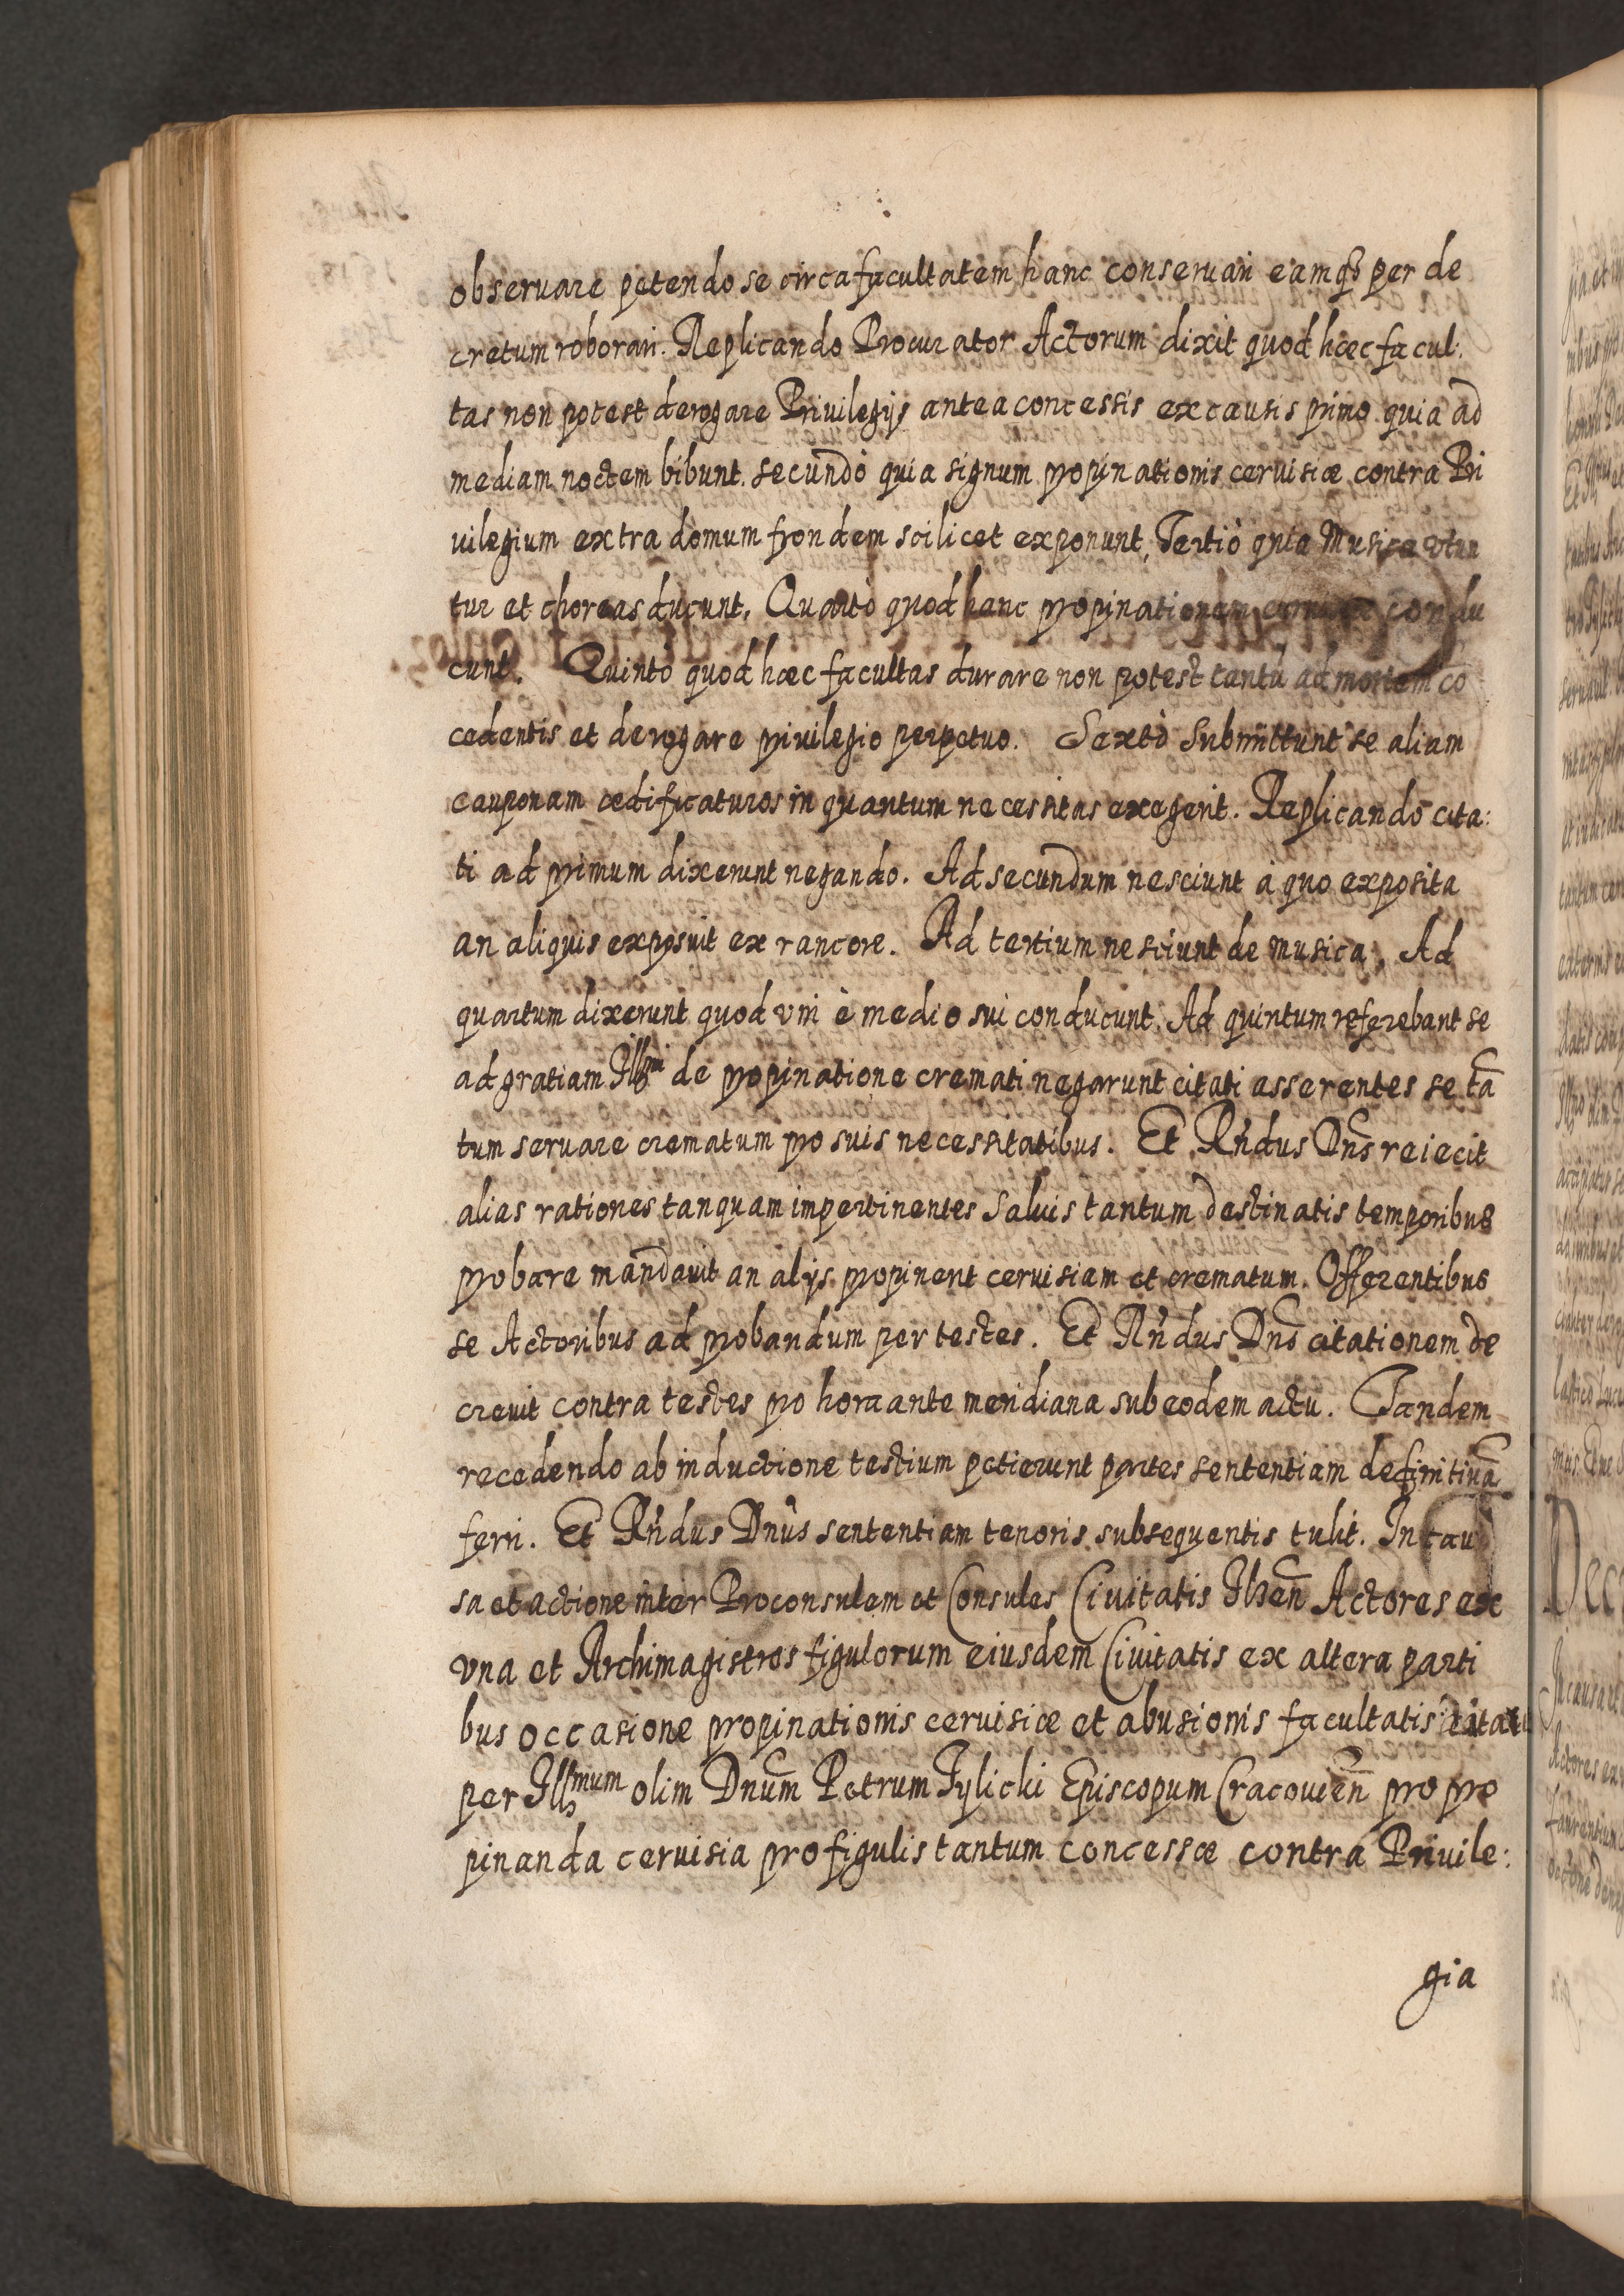 observare petendo se circa facultatem hanc conseruari eamq₃ per de
cretum roborari. Replicando Procurator Actorum dixit quod hæc facul:
tas non potest derogare Priuilegijs antea concessis ex causis primo quia ad
mediam noctem bibunt. secundò quia signum propinationis ceruisiæ contra Pri
uilegium extra domum frondem scilicet exponunt, Tertiò quia Musica vtun
tur et choreas ducunt, Quartò quod hanc propinationem condu
cunt. Quintò quod hæc facultas durare non potest tantũ ad mortem cõ
cedentis et derogare priuilegio perpetuo. Sextò submittunt se aliam
cauponam ædificaturos in quantum necessitas exegerit. Replicando cita:
ti ad primum dixerunt negando. Ad secundum nesciunt à quo exposita
an aliquis exposuit ex rancore. Ad tertium nesciunt de musica, Ad
quartum dixerunt quod vni è medio sui conducunt. Ad quintum referebant se
ad gratiam Illmi de propinatione cremati negarunt citati asserentes se tã
tum seruare crematum pro suis necessitatibus. Et Rñdus Dns reiecit
alias rationes tanquam impertinentes saluis tantum destinatis temporibus
probare mandauit an alijs propinent ceruisiam et crematum. Offerentibus
se Actoribus ad probandum per testes. Et Rñdus Dns citationem de
creuit contra testes pro hora ante meridiana sub eodem actu. Tandem
recedendo ab inductione testium petierunt partes sententiam definitiuã
ferri. Et Rñdus Dnus sententiam tenoris subsequentis tulit. In cau
sa et actione inter Proconsulem et Consules Ciuitatis Ilzeñ Actores ex
vna et Archimagistros figulorum eiusdem Ciuitatis ex altera parti
bus occasione propinationis ceruisiæ et abusionis facultatis citati
per Illmum olim Dnum Petrum Tylicki Episcopum Cracouieñ pro pro
pinanda ceruisia pro figulis tantum concessæ contra Priuile:
gia